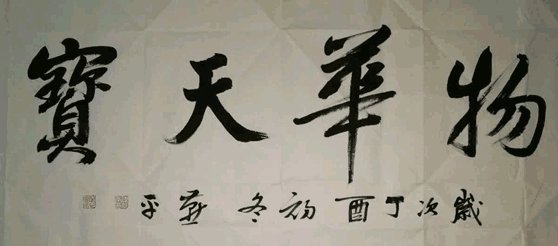 物華天寶
歲次丁酉初冬燕平